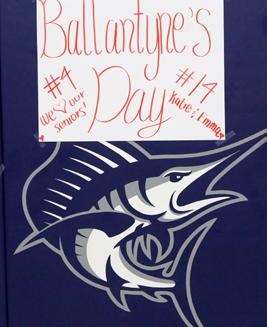 Ballantyne's
Day
#4
We ♡ our
seniors!
#14
Katie & Emma